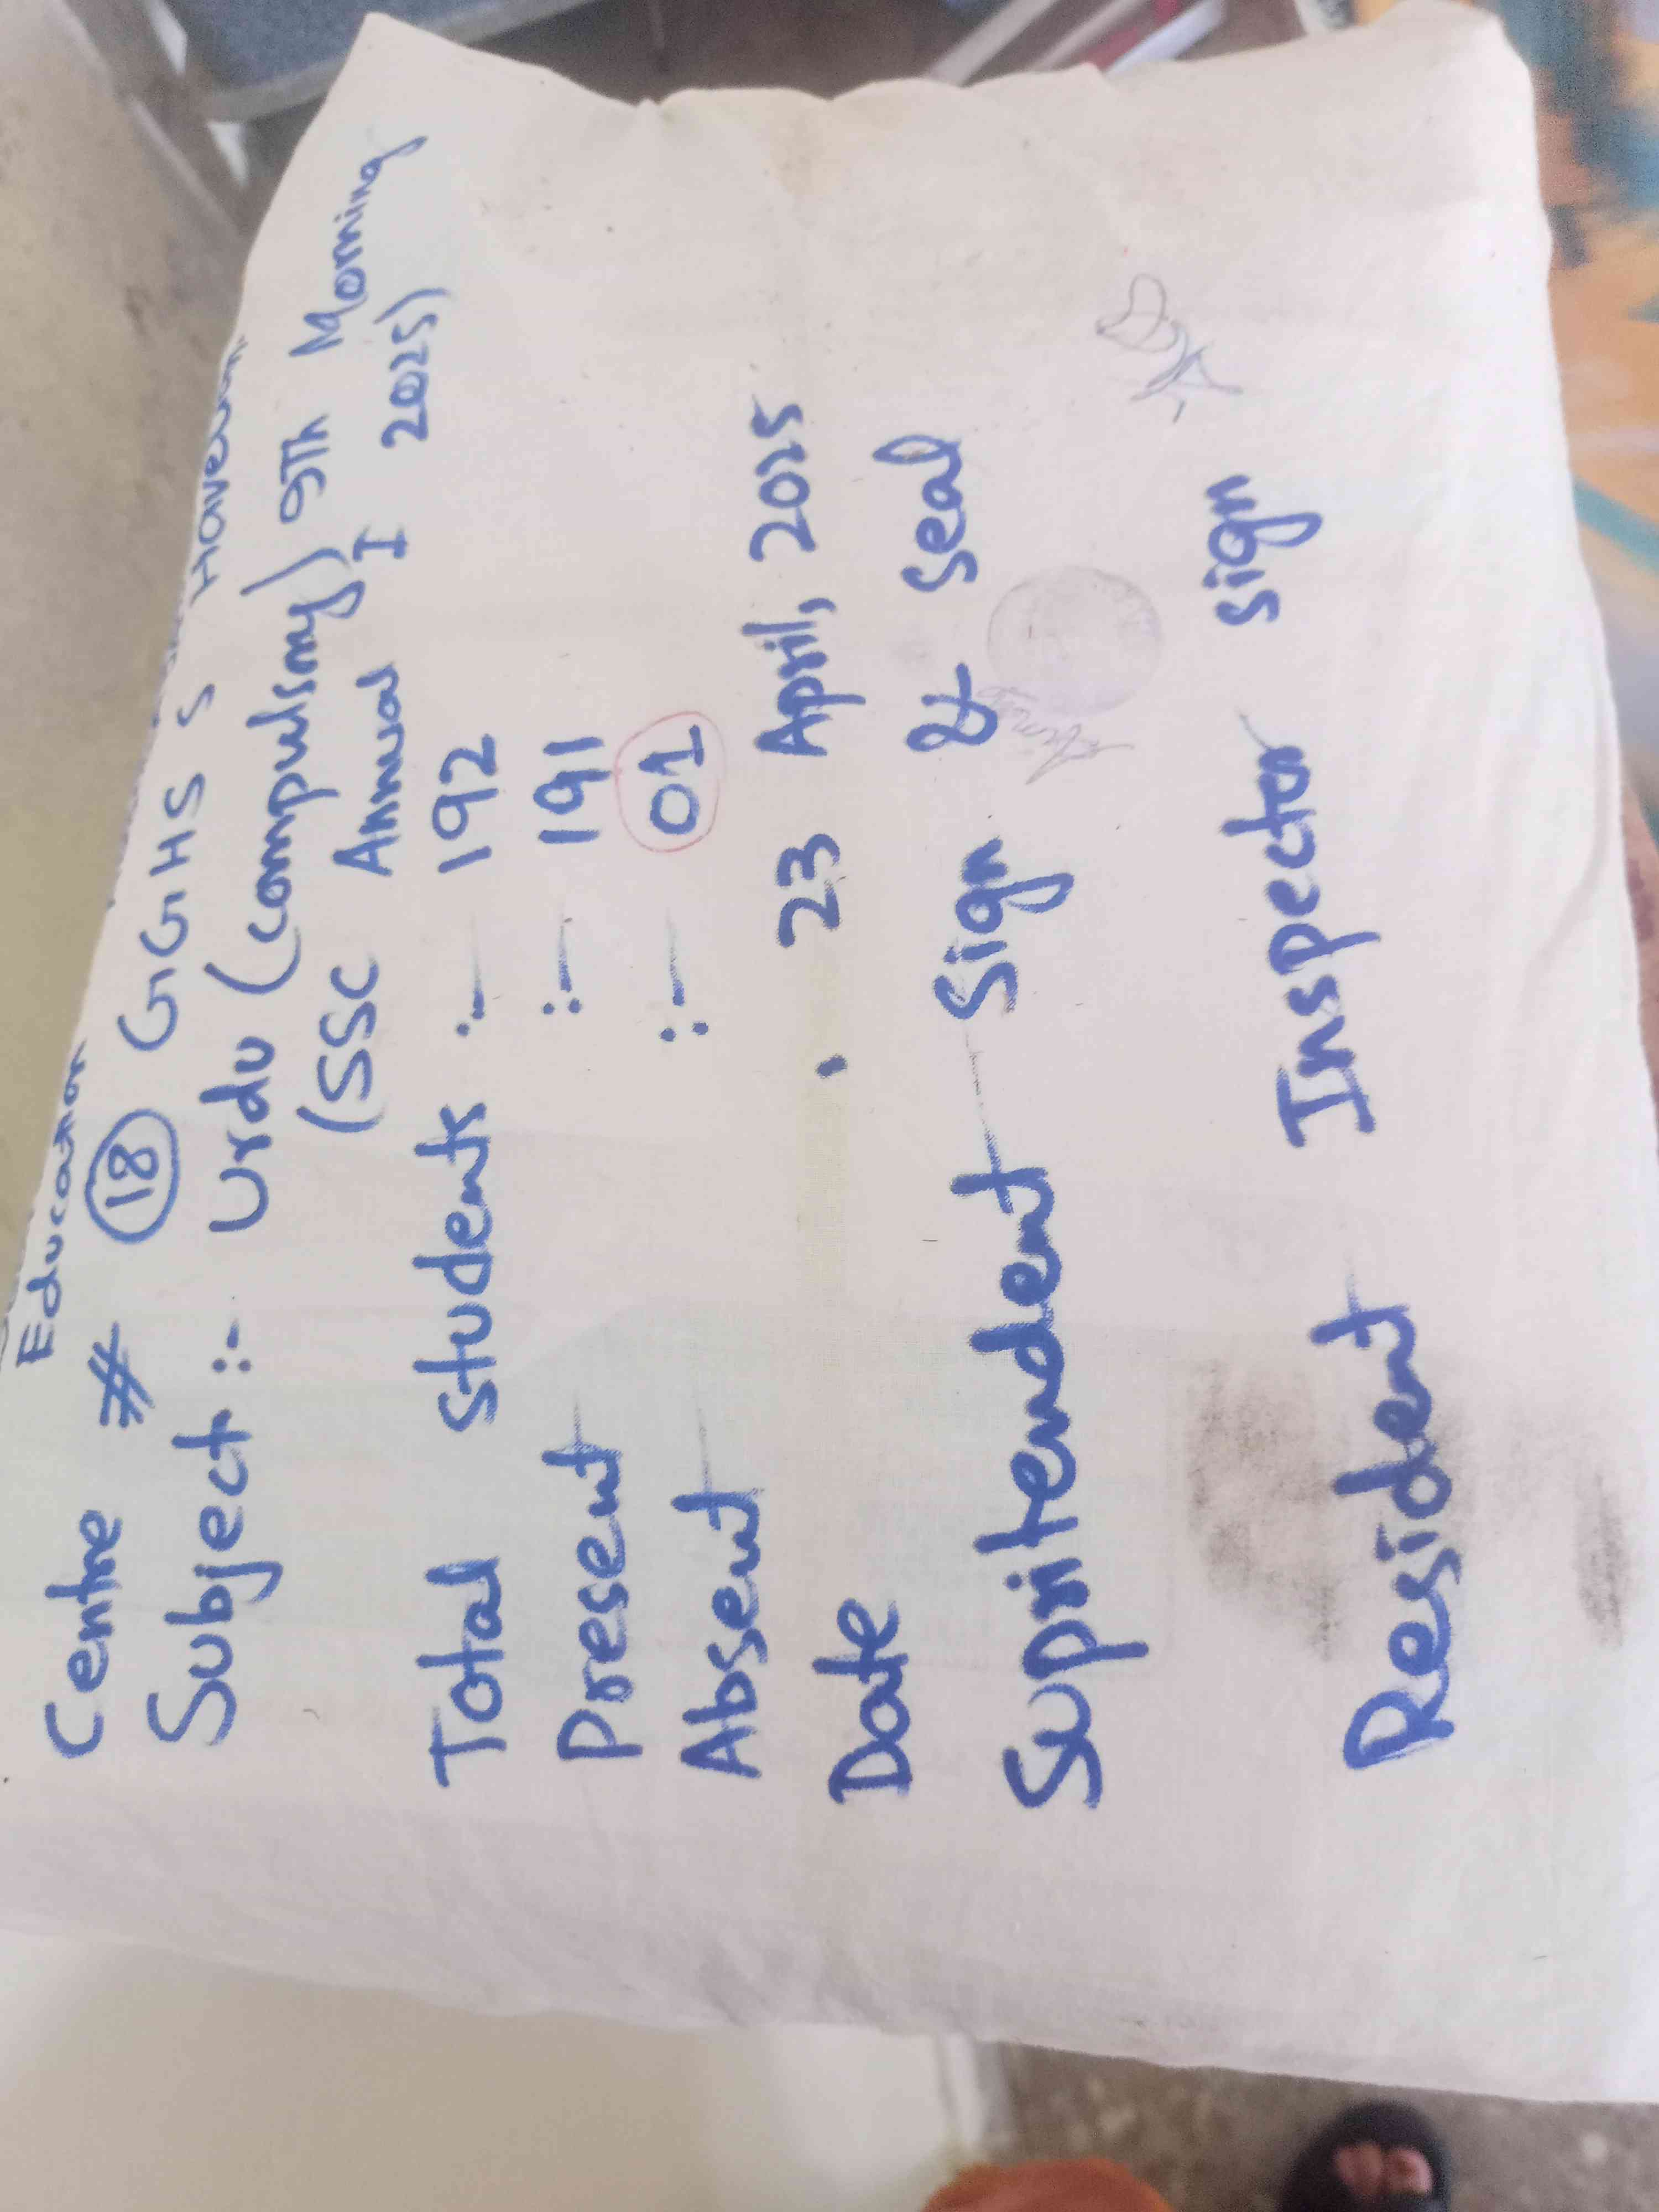 Education
Centre # 18 GGHS S Havelian
Subject :- Urdu (compulsory) 9Th Morning
(SSC Annual I 2025)
Total Students :- 192
Present :- 191
Absent :- 01
Date . 23 April, 2025
Supritendent Sign & Seal
Resident Inspector Sign